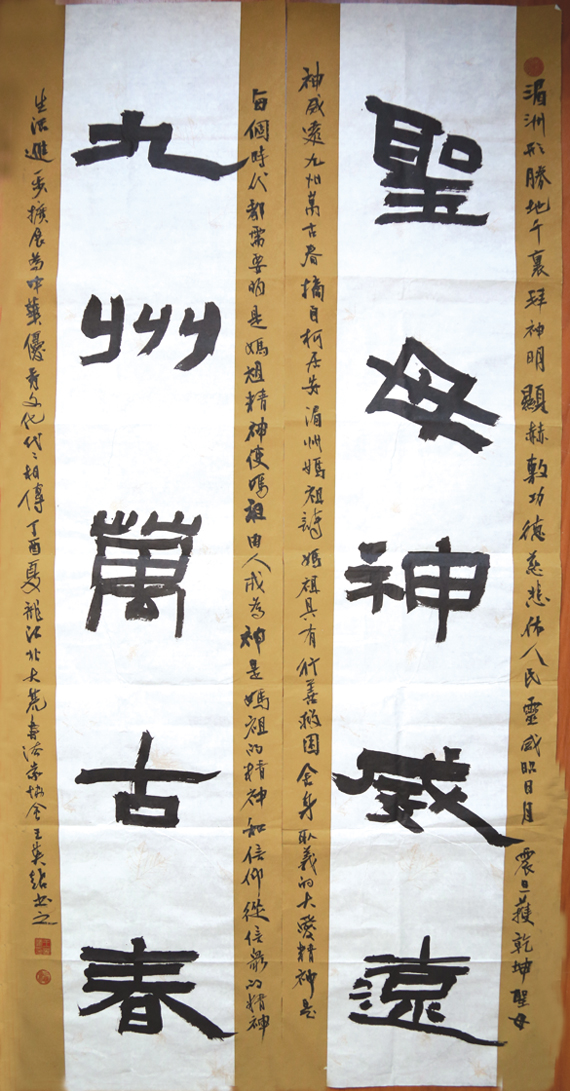 湄洲形勝地千裏拜神明顯赫敷功德慈悲佑人民靈威昭日月震旦獲乾坤聖母
聖母神威遠
神威遠九州萬古春摘自柯居安湄州媽祖詩媽祖具有行善救困舍身取義的大愛精神是
每個時代都需要的是媽祖精神使媽祖由人成為神是媽祖的精神和信仰從信眾的精神
九州萬古春
生活進一步擴展為中華優秀文化代々相傳丁酉夏龍江北大荒書法家協會王英書之